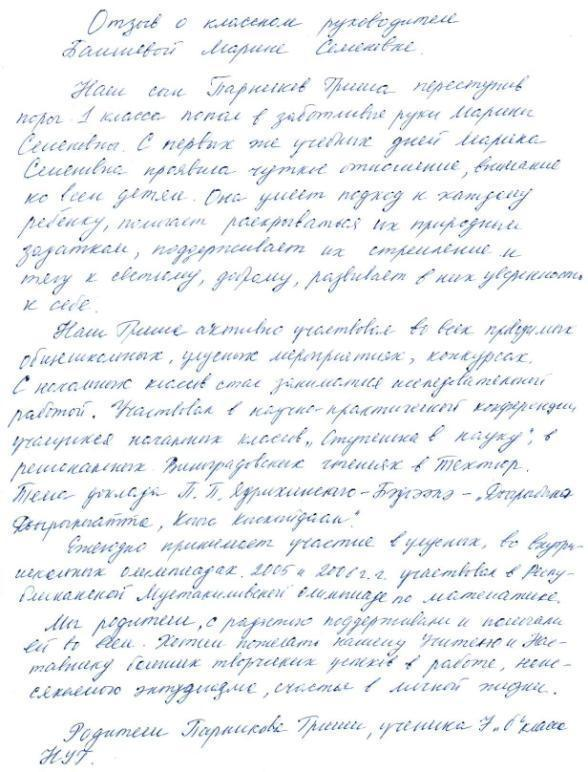 Отзыв о классном руководителе
Башиевой Марине Семеновне.
Наш сын Парников Гриша переступив
порог 1 класса попал в заботливые руки Марины
Семеновны. С первых же учебных дней Марина
Семеновна проявила чуткое отношение, внимание
ко всем детям. Она умеет подход к каждому
ребенку, помогает раскрываться их природным
задаткам, поддерживает их стремление и
тягу к светлому, доброму, развивает в них уверенность
к себе.
Наш Гриша активно участвовал во всех проводимых
общешкольных, улусных мероприятиях, конкурсах.
С начальных классов стал заниматься исследовательской
работой. Участвовал в научно-практической конференции
учащихся начальных классов „Ступенька в науку", в
региональных Виноградовских чтениях в Техтюр.
Тема доклада П. П. Ядрихинского-Бэдьээлэ -
Ежегодно принимает участие в улусных, во внутри-
школьных олимпиадах. 2005 и 2006 г.г. участвовал в Респу-
бликанской Мустакимовской олимпиаде по математике.
Мы родители, с радостью поддерживали и помогали
ей во всем. Хотим пожелать нашему Учителю и Нас-
тавнику больших творческих успехов в работе, неис-
сякаемого энтузиазма, счастья в личной жизни.
Родители Парникова Гриши, ученика 7 „б" класса
НУГ.